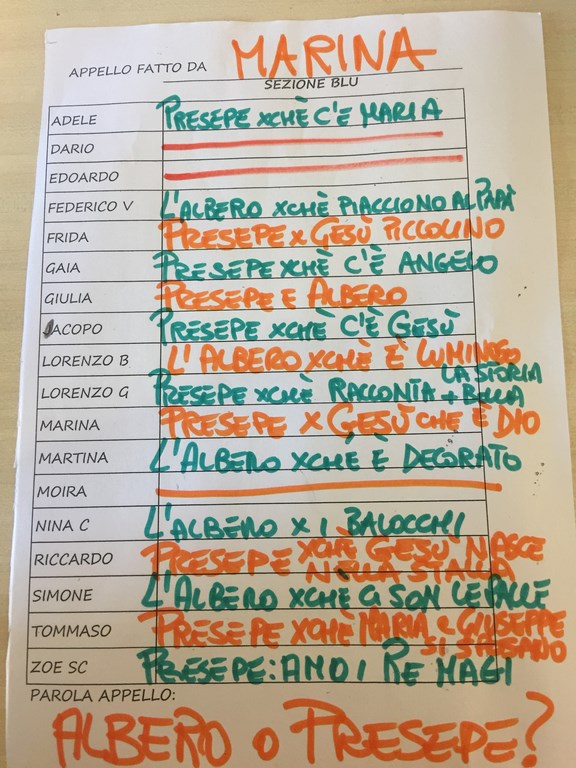 APPELLO FATTO DA MARINA
SEZIONE BLU
ADELE PRESEPE XCHÈ C'È MARIA
DARIO
EDOARDO
FEDERICO V L'ALBERO XCHÈ PIACCIONO AL PAPÀ
FRIDA PRESEPE X GESÙ PICCOLINO
GAIA PRESEPE XCHÈ C'È ANGELO
GIULIA PRESEPE E ALBERO
JACOPO PRESEPE XCHÈ C'È GESÙ
LORENZO B L'ALBERO XCHÈ È LUMINOSO
LORENZO G PRESEPE XCHÈ RACCONTA LA STORIA + BELLA
MARINA PRESEPE X GESÙ CHE È DIO
MARTINA L'ALBERO XCHÈ È DECORATO
MOIRA
NINA C L'ALBERO X I BALOCCHI
RICCARDO PRESEPE XCHÈ GESÙ NASCE
NELLA STALLA
SIMONE L'ALBERO XCHÈ CI SON LE PALLE
TOMMASO PRESEPE XCHÈ MARIA E GIUSEPPE
SI SPOSANO
ZOE SC PRESEPE: AMO I RE MAGI
PAROLA APPELLO:
ALBERO O PRESEPE?